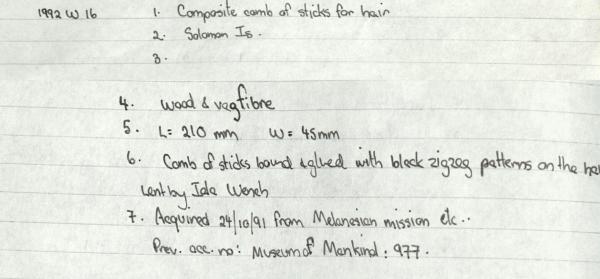 1992 W 16 1. Composite comb of sticks for hair
2. Solomon Is.
3.
4. Wood & vegfibre
5. L= 210 mm W= 45mm
6. Comb of sticks bound & glued with black zigzag patterns on the
Lent by Ida
7. Acquired 24/10/91 from Melanesian mission etc..
Prev. acc. no: Museum of Mankind: 977.